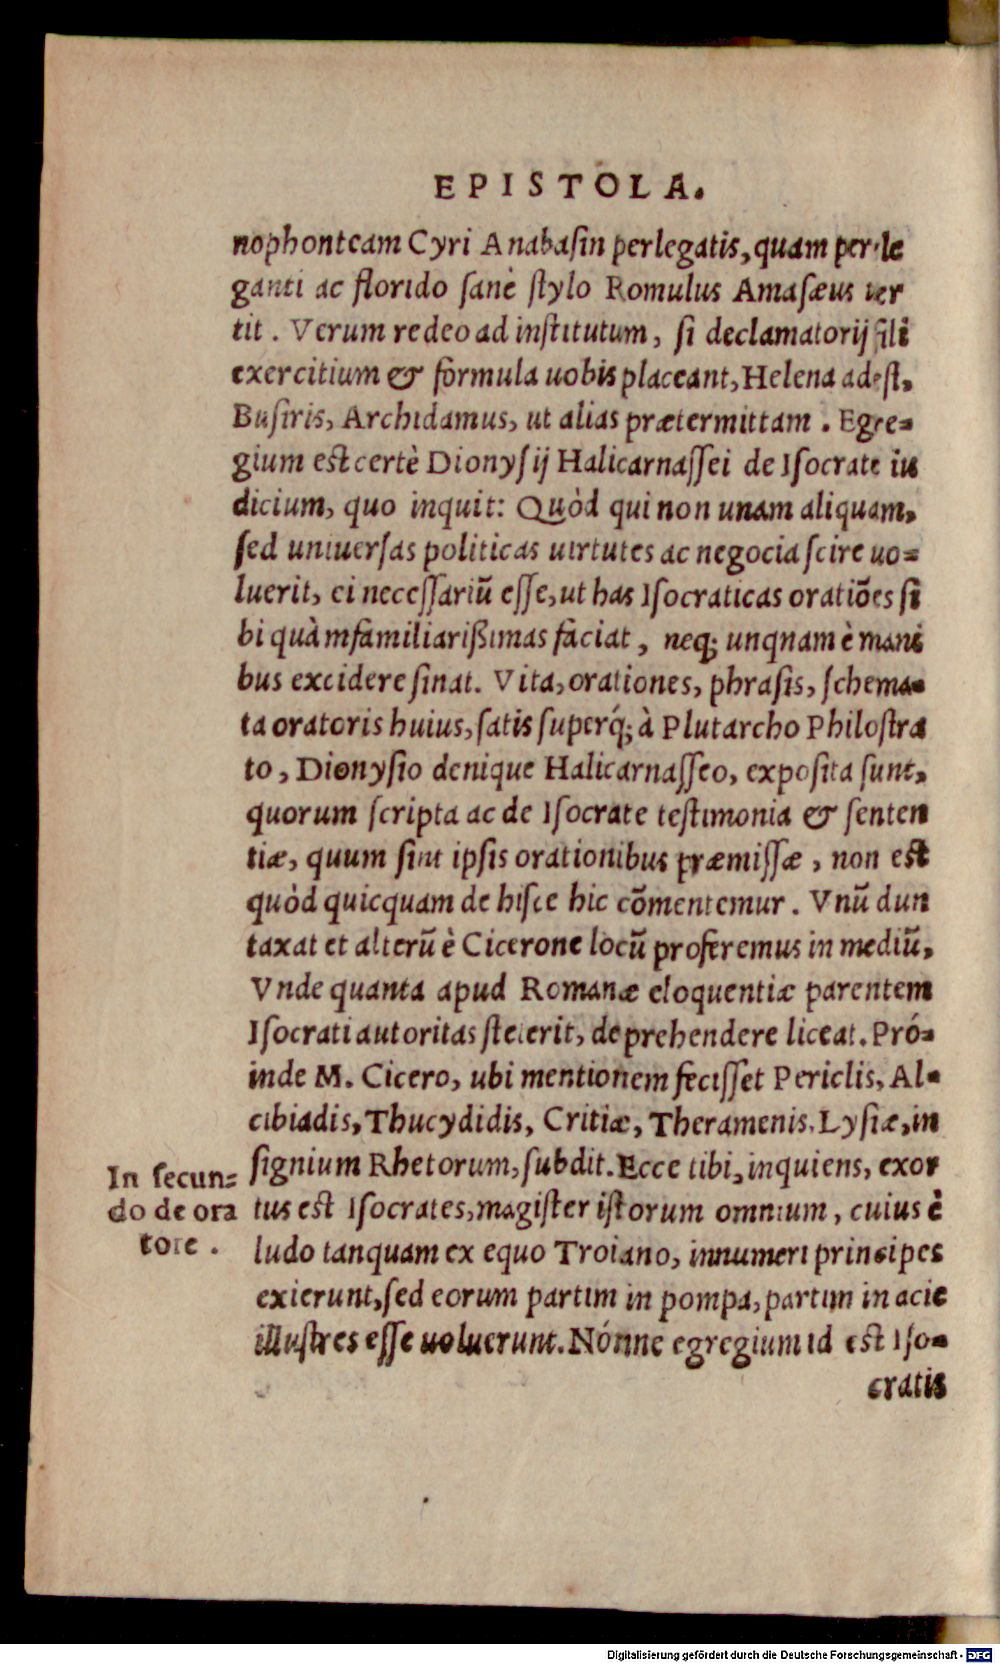 EPISTOLA.
nophonteam Cyri Anabaſin perlegatis, quam per-le
ganti ac florido ſanè ſtylo Romulus Amaſæus uer
tit. Verum redeo ad inſtitutum, ſi declamatorij ſtili
exercitium & formula uobis placeant, Helena adeſt,
Buſiris, Archidamus, ut alias prætermittam. Egre=
gium eſt certè Dionyſij Halicarnaſſei de Iſocrate iu
dicium, quo inquit: Quòd qui non unam aliquam,
ſed uniuerſas politicas uirtutes ac negocia ſcire uo=
luerit, ei neceſſariũ eſſe, ut has Iſocraticas oratiões ſi
bi quàm familiarißimas faciat, neq; unqnam è mani
bus excidere ſinat. Vita, orationes, phraſis, ſchema=
ta oratoris huius, ſatis ſuperq́; à Plutarcho Philoſtra
to, Dionyſio denique Halicarnaſſeo, expoſita ſunt,
quorum ſcripta ac de Iſocrate teſtimonia & ſenten
tiæ, quum ſint ipſis orationibus præmiſſæ, non eſt
quòd quicquam de hiſce hic cõmentemur. Vnũ dun
taxat et alterũ è Cicerone locũ proferemus in mediũ,
Vnde quanta apud Romanæ eloquentiæ parentem
Iſocrati autoritas ſteterit, deprehendere liceat. Pró=
inde M. Cicero, ubi mentionem feciſſet Periclis, Al=
cibiadis, Thucydidis, Critiæ, Theramenis, Lyſiæ, in
ſignium Rhetorum, ſubdit. Ecce tibi, inquiens, exor
tus eſt Iſocrates, magiſter iſtorum omnium, cuius è
ludo tanquam ex equo Troiano, innumeri principes
exierunt, ſed eorum partim in pompa, partim in acie
illuſtres eſſe uoluerunt. Nónne egregium id eſt Iſo=
cratis
In ſecun=
do de ora
tore.
Digitalisierung gefördert durch die Deutsche Forschungsgemeinschaft - DFG